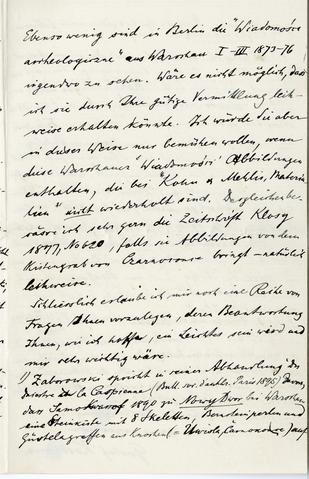 Ebenso wenig sind in Berlin die "Wiadomości
archeologiczne" aus Warschau I–III 1873–76
irgendwo zu sehen. Wäre es nicht möglich, dass
ich sie durch Ihre gütige Vermittlung leih-
weise erhalten könnte. Ich würde Sie aber
in dieser Weise nur bemühen wollen, wenn
diese Warschauer "Wiadomości" Abbildungen
enthalten, die bei "Kohn u. Mehlis, Materia-
lien" nicht wiederholt sind. Desgleichen
ich sehr gern die Zeitschrift Klosy
1877, No 620, falls sie Abbildungen von dem
Kistengrab von Czarnotousc bringt – natürlich
leihweise.
Schliesslich erlaube ich mir noch eine Reihe von
Fragen Ihnen vorzulegen, deren Beantwortung
Ihnen, wie ich hoffe, ein Leichtes sein wird und
mir sehr wichtig wäre.
1) Zaborowski spricht in seiner Abhandlung "Du
à la Caspienne" (Bull. soc. d'anthr. Paris 1895)
dass Samokwasof 1890 zu Nowy Dwor bei Warschau
eine Steinkiste mit 8 Skeletten, Bernsteinperlen und
Gürtelagraffen aus Knochen (=